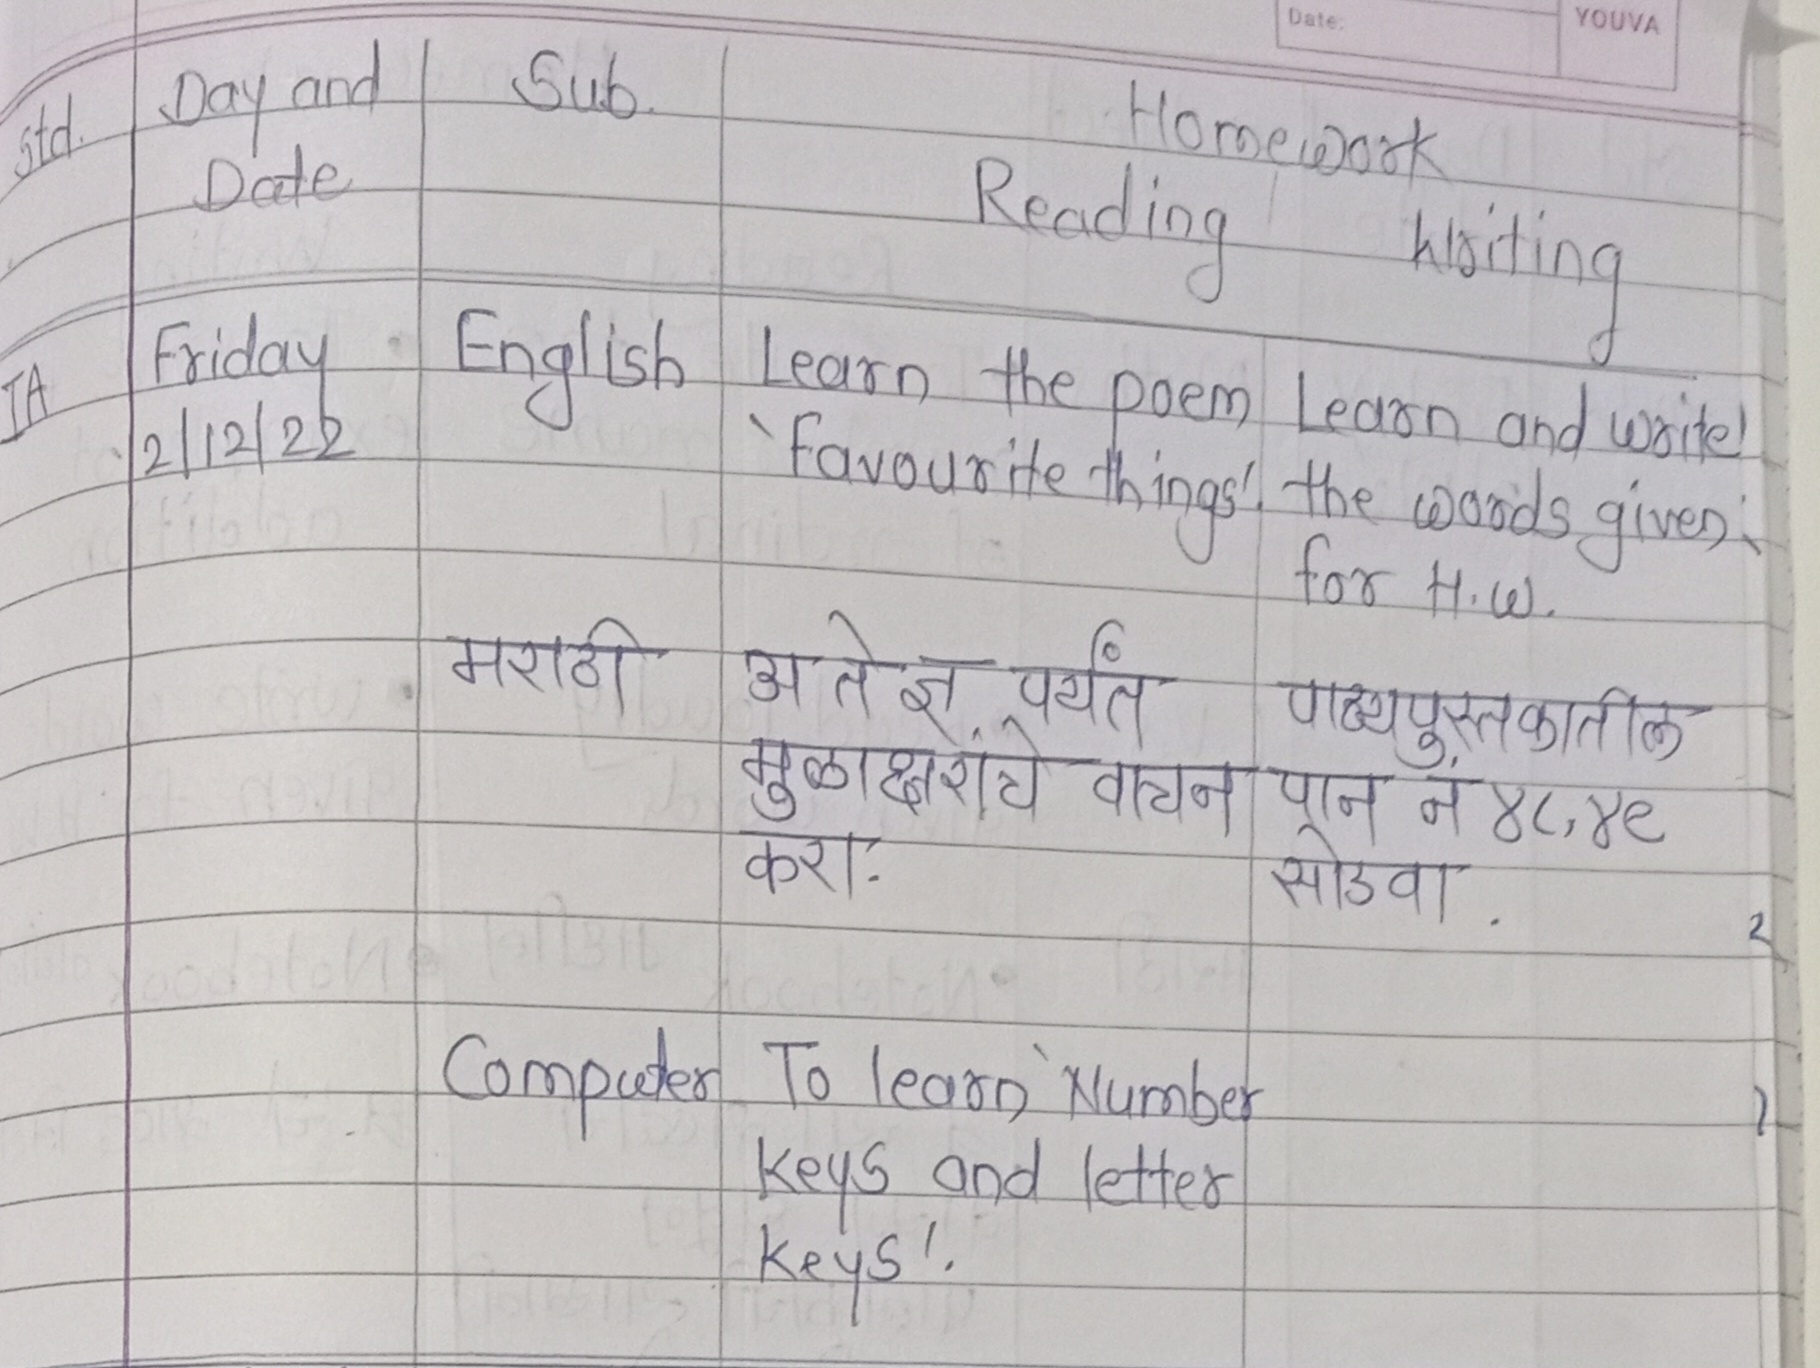 Date: YOUVA
Std. Day and Date Sub. Homework
Reading Writing
IA Friday English Learn the poem Learn and write
2/12/22 'Favourite things'. the words given
for H.W.
मराठी अ ते ज्ञ पर्यंत पाठ्यपुस्तकातील
मुळाक्षरांचे वाचन पान नं ४८, ४९
करा. सोडवा.
Computer To learn 'Number
keys and letter
keys'.